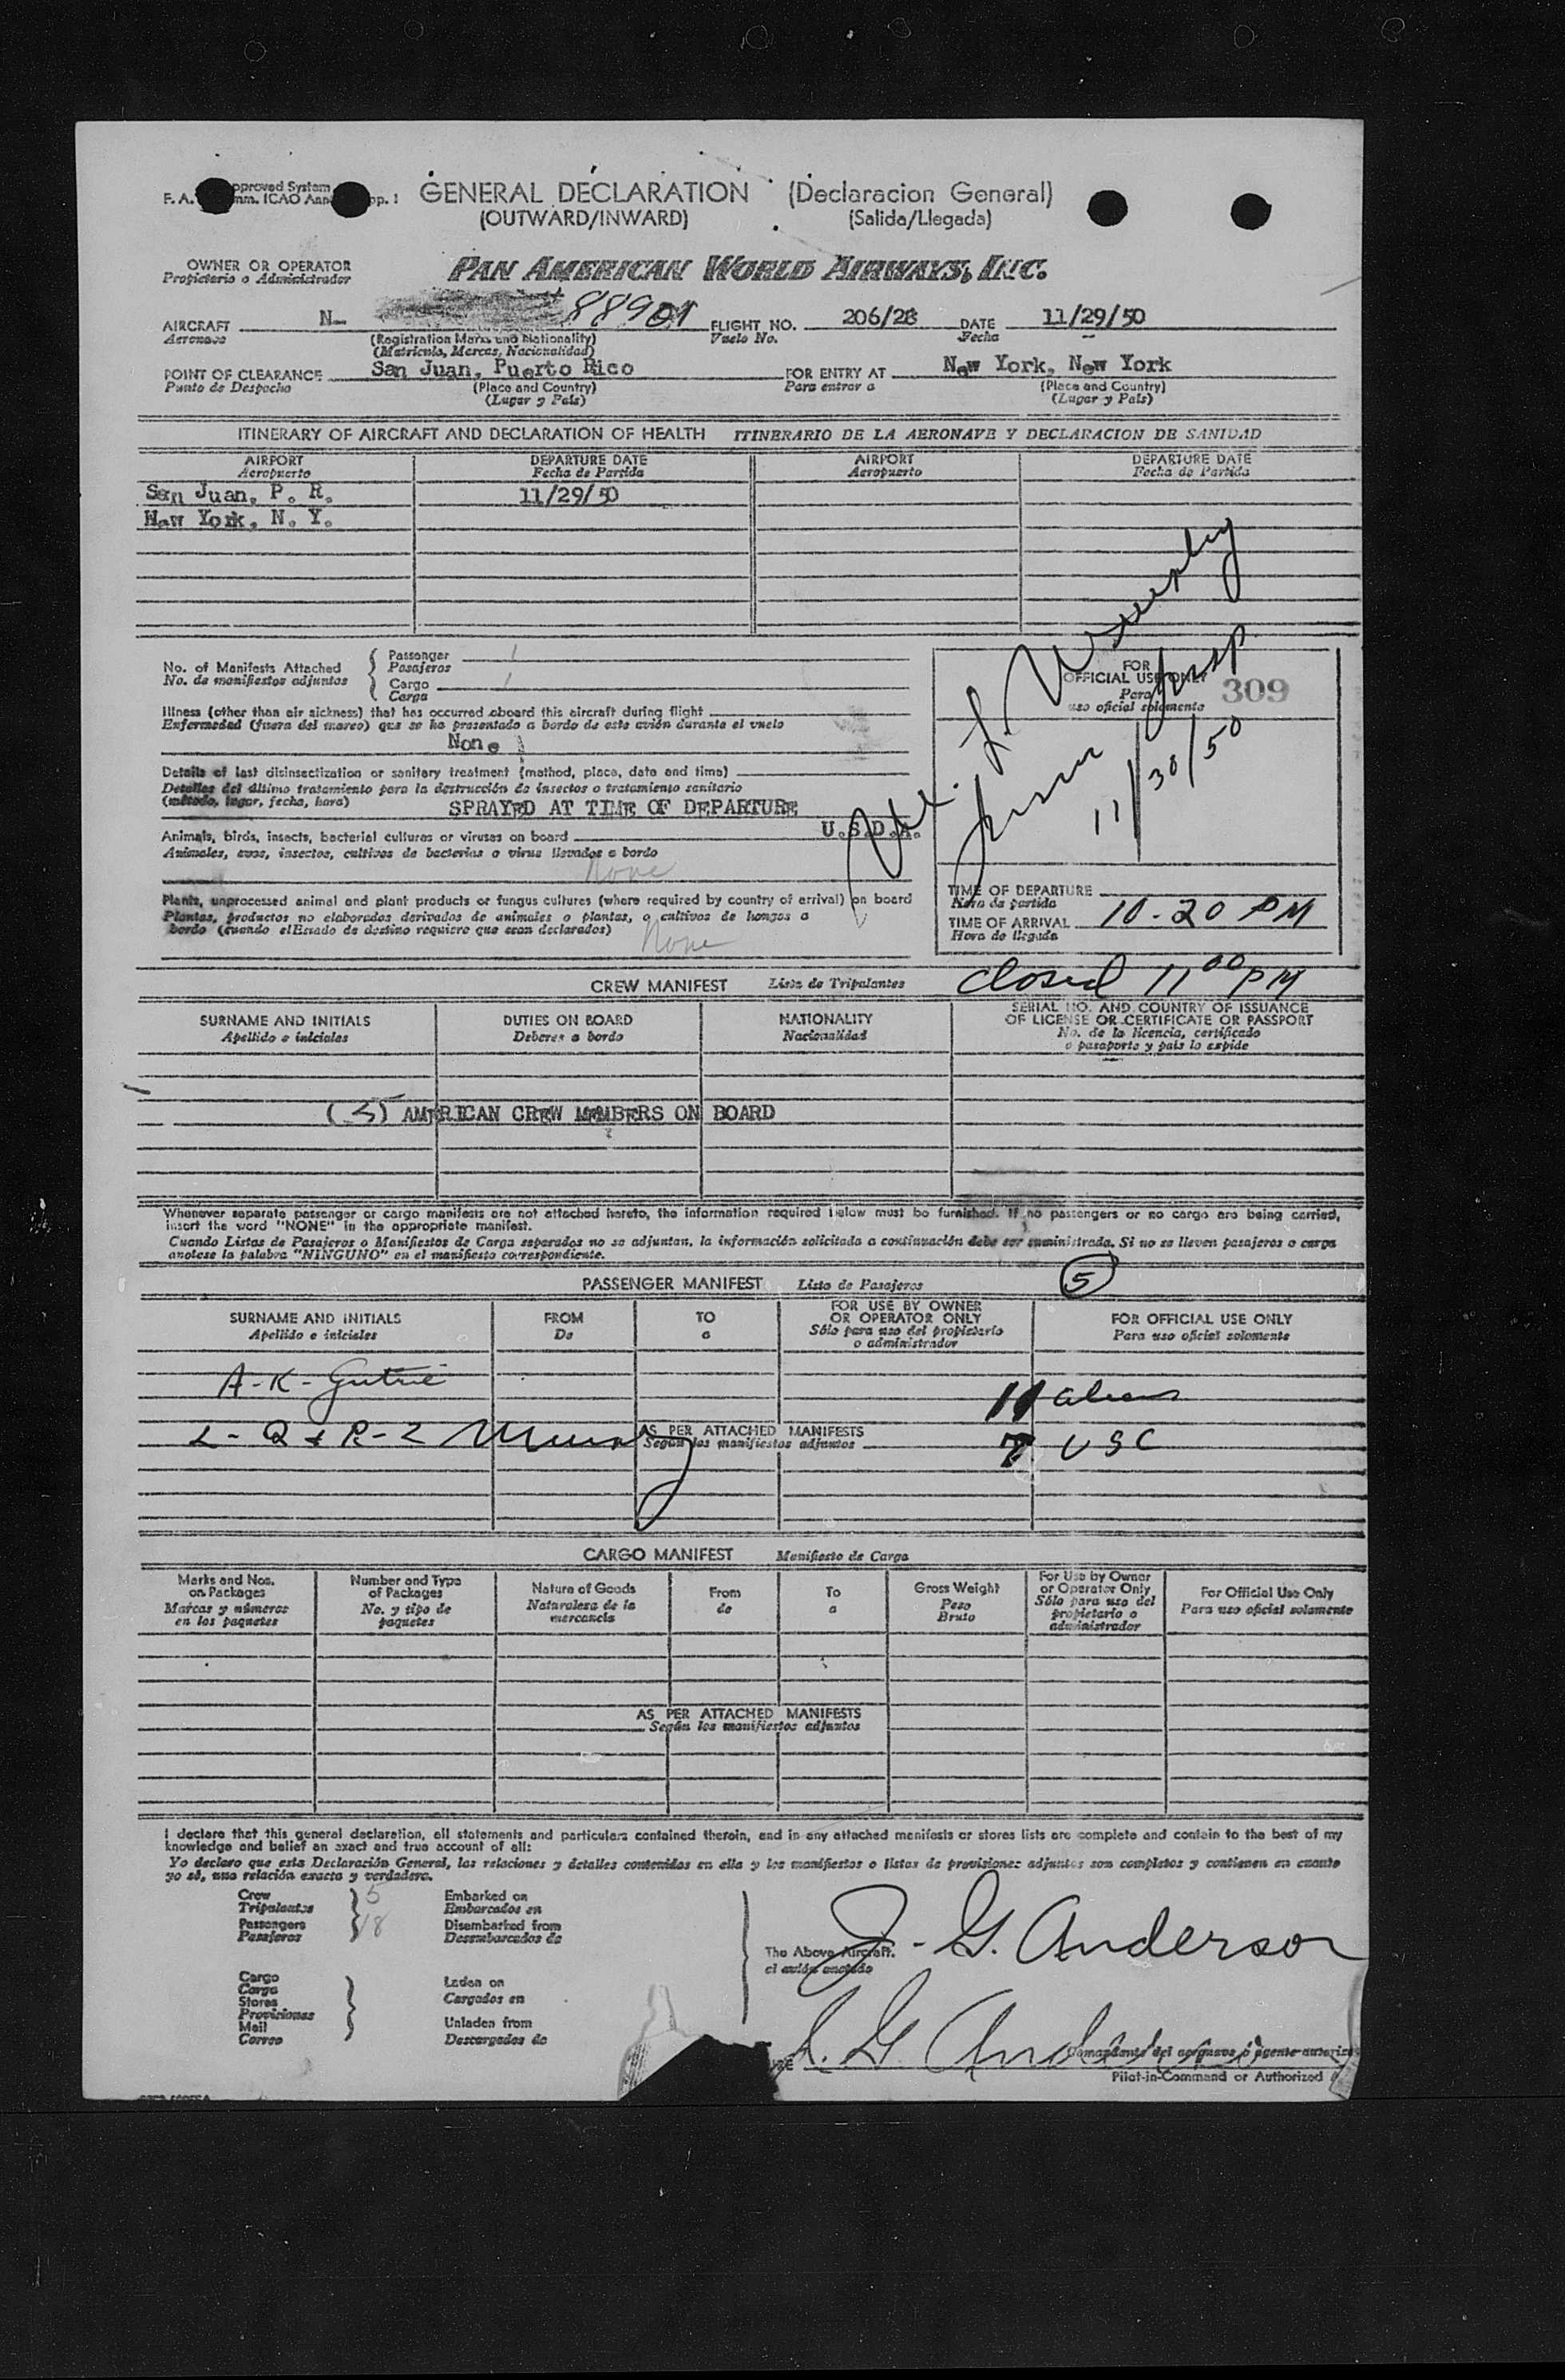 pproved System
F. A. mm. ICAO Ann pp. 1
GENERAL DECLARATION (Declaracion General)
(OUTWARD/INWARD) (Salida/Llegada)
OWNER OR OPERATOR PAN AMERICAN WORLD AIRWAYS, INC.
Propietario o Administrador
AIRCRAFT N- 88901 FLIGHT NO. 206/28 DATE 11/29/50
Aeronave (Registration Marks and Nationality) Vuelo No. Fecha
(Matricula, Marcas, Nacionalidad)
POINT OF CLEARANCE San Juan, Puerto Rico FOR ENTRY AT New York, New York
Punto de Despacho (Place and Country) Para entrar a (Place and Country)
(Lugar y País) (Lugar y País)
ITINERARY OF AIRCRAFT AND DECLARATION OF HEALTH ITINERARIO DE LA AERONAVE Y DECLARACION DE SANIDAD
AIRPORT DEPARTURE DATE AIRPORT DEPARTURE DATE
Aeropuerto Fecha de Partida Aeropuerto Fecha de Partida
San Juan, P. R. 11/29/50
New York, N. Y.
No. of Manifests Attached
No. de manifiestos adjuntos
Passenger 1
Pasajeros
Cargo 1
Carga
FOR
OFFICIAL USE ONLY
Para
uso oficial solamente
309
11/30/50
Illness (other than air sickness) that has occurred aboard this aircraft during flight
Enfermedad (fuera del mareo) que se ha presentado a bordo de este avión durante el vuelo
None
Details of last disinsectization or sanitary treatment (method, place, date and time)
Detalles del último tratamiento para la destrucción de insectos o tratamiento sanitario
(método, lugar, fecha, hora)
SPRAYED AT TIME OF DEPARTURE
U.S.D.A.
Animals, birds, insects, bacterial cultures or viruses on board
Animales, aves, insectos, cultivos de bacterias o virus llevados a bordo
None
Plants, unprocessed animal and plant products or fungus cultures (where required by country of arrival) on board
Plantas, productos no elaborados derivados de animales o plantas, o cultivos de hongos a
bordo (cuando el Estado de destino requiere que sean declarados)
None
TIME OF DEPARTURE
Hora de partida
TIME OF ARRIVAL 10-20 PM
Hora de llegada
closed 11 00 PM
CREW MANIFEST Lista de Tripulantes
SURNAME AND INITIALS DUTIES ON BOARD NATIONALITY SERIAL NO. AND COUNTRY OF ISSUANCE
OF LICENSE OR CERTIFICATE OR PASSPORT
Apellido e iniciales Deberes a bordo Nacionalidad No. de la licencia, certificado
o pasaporte y país lo expide
(5) AMERICAN CREW MEMBERS ON BOARD
Whenever separate passenger or cargo manifests are not attached hereto, the information required below must be furnished. If no passengers or no cargo are being carried,
insert the word "NONE" in the appropriate manifest.
Cuando Listas de Pasajeros o Manifiestos de Carga separados no se adjuntan, la información solicitada a continuación debe ser suministrada. Si no se lleven pasajeros o carga
anotese la palabra "NINGUNO" en el manifiesto correspondiente.
PASSENGER MANIFEST Lista de Pasajeros 5
SURNAME AND INITIALS FROM TO FOR USE BY OWNER
OR OPERATOR ONLY FOR OFFICIAL USE ONLY
Apellido e iniciales De a Sólo para uso del propietario
o administrador Para uso oficial solamente
A-K-Gutrie
11 aliens
AS PER ATTACHED MANIFESTS
Según los manifiestos adjuntos
7 USC
CARGO MANIFEST Manifiesto de Carga
Marks and Nos.
on Packages
Marcas y números
en los paquetes
Number and Type
of Packages
No. y tipo de
paquetes
Nature of Goods
Naturaleza de la
mercancia
From
de
To
a
Gross Weight
Peso
Bruto
For Use by Owner
or Operator Only
Sólo para uso del
propietario o
administrador
For Official Use Only
Para uso oficial solamente
AS PER ATTACHED MANIFESTS
Según los manifiestos adjuntos
I declare that this general declaration, all statements and particulars contained therein, and in any attached manifests or stores lists are complete and contain to the best of my
knowledge and belief an exact and true account of all:
Yo declaro que esta Declaración General, las relaciones y detalles contenidos en ella y los manifiestos o listas de provisiones adjuntos son completos y contienen en cuanto
yo sé, una relación exacta y verdadera.
Crew 5 Embarked on
Tripulantes Embarcados en
Passengers 18 Disembarked from
Pasajeros Desembarcados de
The Above Aircraft.
el avión anotado
J. G. Anderson
Cargo
Carga
Stores
Provisiones
Mail
Correo
Laden on
Cargados en
Unladen from
Descargados de
J. G. Anderson
Comandante del aeronave o agente autoriz
Pilot-in-Command or Authorized